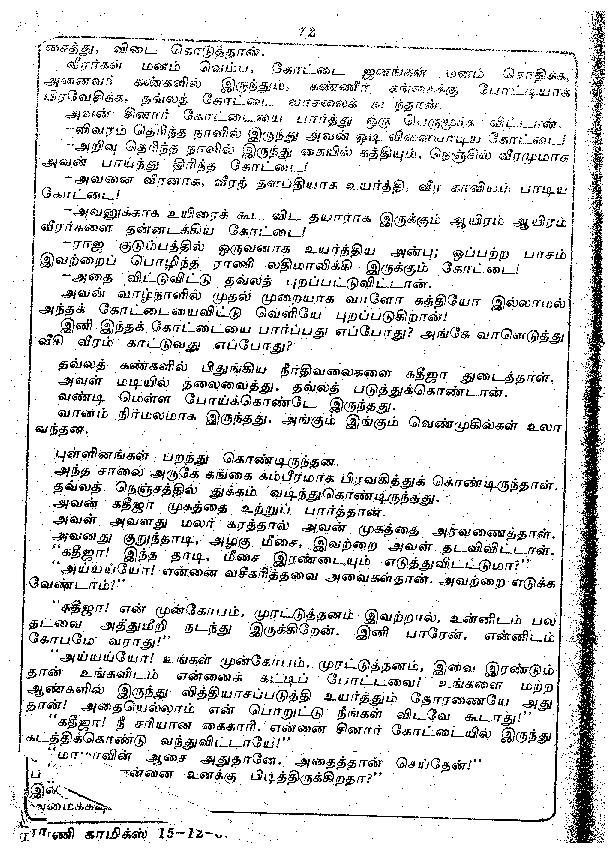 72
சைத்து, விடை கொடுத்தான்.
வீரர்கள் மனம் வெம்ப, கோட்டை ஜனங்கள் மனம் கொதிக்க,
அனைவர் கண்களில் இருந்தும், கண்ணீர் கங்கைக்கு போட்டியாக
பிரவேசிக்க, தவ்லத் கோட்டை வாசலைக் கடந்தான்.
அவன் சினார் கோட்டையை பார்த்து ஒரு பெருமூச்சு விட்டான்.
—விவரம் தெரிந்த நாளில் இருந்து அவன் ஓடி விளையாடிய கோட்டை!
—அறிவு தெரிந்த நாளில் இருந்து கையில் கத்தியும், நெஞ்சில் வீரமுமாக
அவன் பாய்ந்து திரிந்த கோட்டை!
—அவனை வீரனாக, வீரத் தளபதியாக உயர்த்தி, வீர காவியம் பாடிய
கோட்டை!
—அவனுக்காக உயிரைக் கூட விட தயாராக இருக்கும் ஆயிரம் ஆயிரம்
வீரர்களை தன்னடக்கிய கோட்டை!
—ராஜ குடும்பத்தில் ஒருவனாக உயர்த்திய அன்பு; ஒப்பற்ற பாசம்
இவற்றைப் பொழிந்த ராணி லதிமாலிக்கி இருக்கும் கோட்டை!
—அதை விட்டுவிட்டு தவ்லத் புறப்பட்டுவிட்டான்.
அவன் வாழ்நாளில் முதல் முறையாக வாளோ கத்தியோ இல்லாமல்
அந்தக் கோட்டையைவிட்டு வெளியே புறப்படுகிறான்!
இனி இந்தக் கோட்டையை பார்ப்பது எப்போது? அங்கே வாளெடுத்து
வீசி வீரம் காட்டுவது எப்போது?
தவ்லத் கண்களில் பிதுங்கிய நீர்திவலைகளை கதீஜா துடைத்தாள்.
அவள் மடியில் தலைவைத்து, தவ்லத் படுத்துக்கொண்டான்.
வண்டி மெள்ள போய்க்கொண்டே இருந்தது.
வானம் நிர்மலமாக இருந்தது. அங்கும் இங்கும் வெண்முகில்கள் உலா
வந்தன.
புள்ளினங்கள் பறந்து கொண்டிருந்தன.
அந்த சாலை அருகே கங்கை கம்பீரமாக பிரவகித்துக் கொண்டிருந்தாள்.
தவ்லத் நெஞ்சத்தில் துக்கம் வடிந்துகொண்டிருந்தது.
அவன் கதீஜா முகத்தை உற்றுப் பார்த்தான்.
அவள் அவளது மலர் கரத்தால் அவன் முகத்தை அரவணைத்தாள்.
அவனது குறுந்தாடி, அழகு மீசை, இவற்றை அவள் தடவிவிட்டாள்.
"கதீஜா! இந்த தாடி, மீசை இரண்டையும் எடுத்துவிட்டட்டுமா?"
"அய்யய்யோ! என்னை வசீகரித்தவை அவைகள்தான். அவற்றை எடுக்க
வேண்டாம்!"
"கதீஜா! என் முன்கோபம், முரட்டுத்தனம் இவற்றால், உன்னிடம் பல
தடவை அத்துமீறி நடந்து இருக்கிறேன். இனி பாரேன். என்னிடம்
கோபமே வராது!"
"அய்யய்யோ! உங்கள் முன்கோபம், முரட்டுத்தனம், இவை இரண்டும்
தான் உங்களிடம் என்னைக் கட்டிப் போட்டவை! உங்களை மற்ற
ஆண்களில் இருந்து வித்தியாசப்படுத்தி உயர்த்தும் தோரணையே அது
தான்! அதையெல்லாம் என் பொறுட்டு நீங்கள் விடவே கூடாது!"
"கதீஜா! நீ சரியான கைகாரி. என்னை சினார் கோட்டையில் இருந்து
கடத்திக்கொண்டு வந்துவிட்டாயே!"
"மாமாவின் ஆசை அதுதானே. அதைத்தான் செய்தேன்!"
என்னை உனக்கு பிடித்திருக்கிறதா?"
ராணி காமிக்ஸ் 15-12-